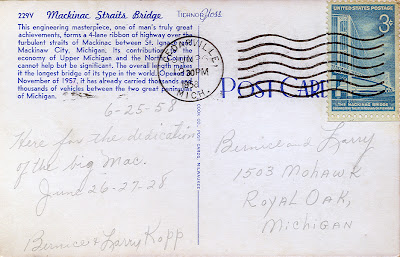 229V Mackinac Straits Bridge
This engineering masterpiece, one of man's truly great
achievements, forms a 4-lane ribbon of highway over the
turbulent straits of Mackinac between St. Ignace and
Mackinaw City, Michigan. Its contribution to the
economy of Upper Michigan and the North Country
cannot help but be significant. The overall length makes
it the longest bridge of its type in the world. Opened in
November of 1957, it has already carried thousands upon
thousands of vehicles between the two great peninsulas
of Michigan.
PM
1958
MICH.
UNITED STATES POSTAGE
3¢
THE MACKINAC BRIDGE
POST CARD
6-25-58
Here for the dedication
of the big Mac.
June 26-27-28
Bernice & Larry Kopp
Bernice and Larry
1503 Mohawk
Royal Oak,
Michigan